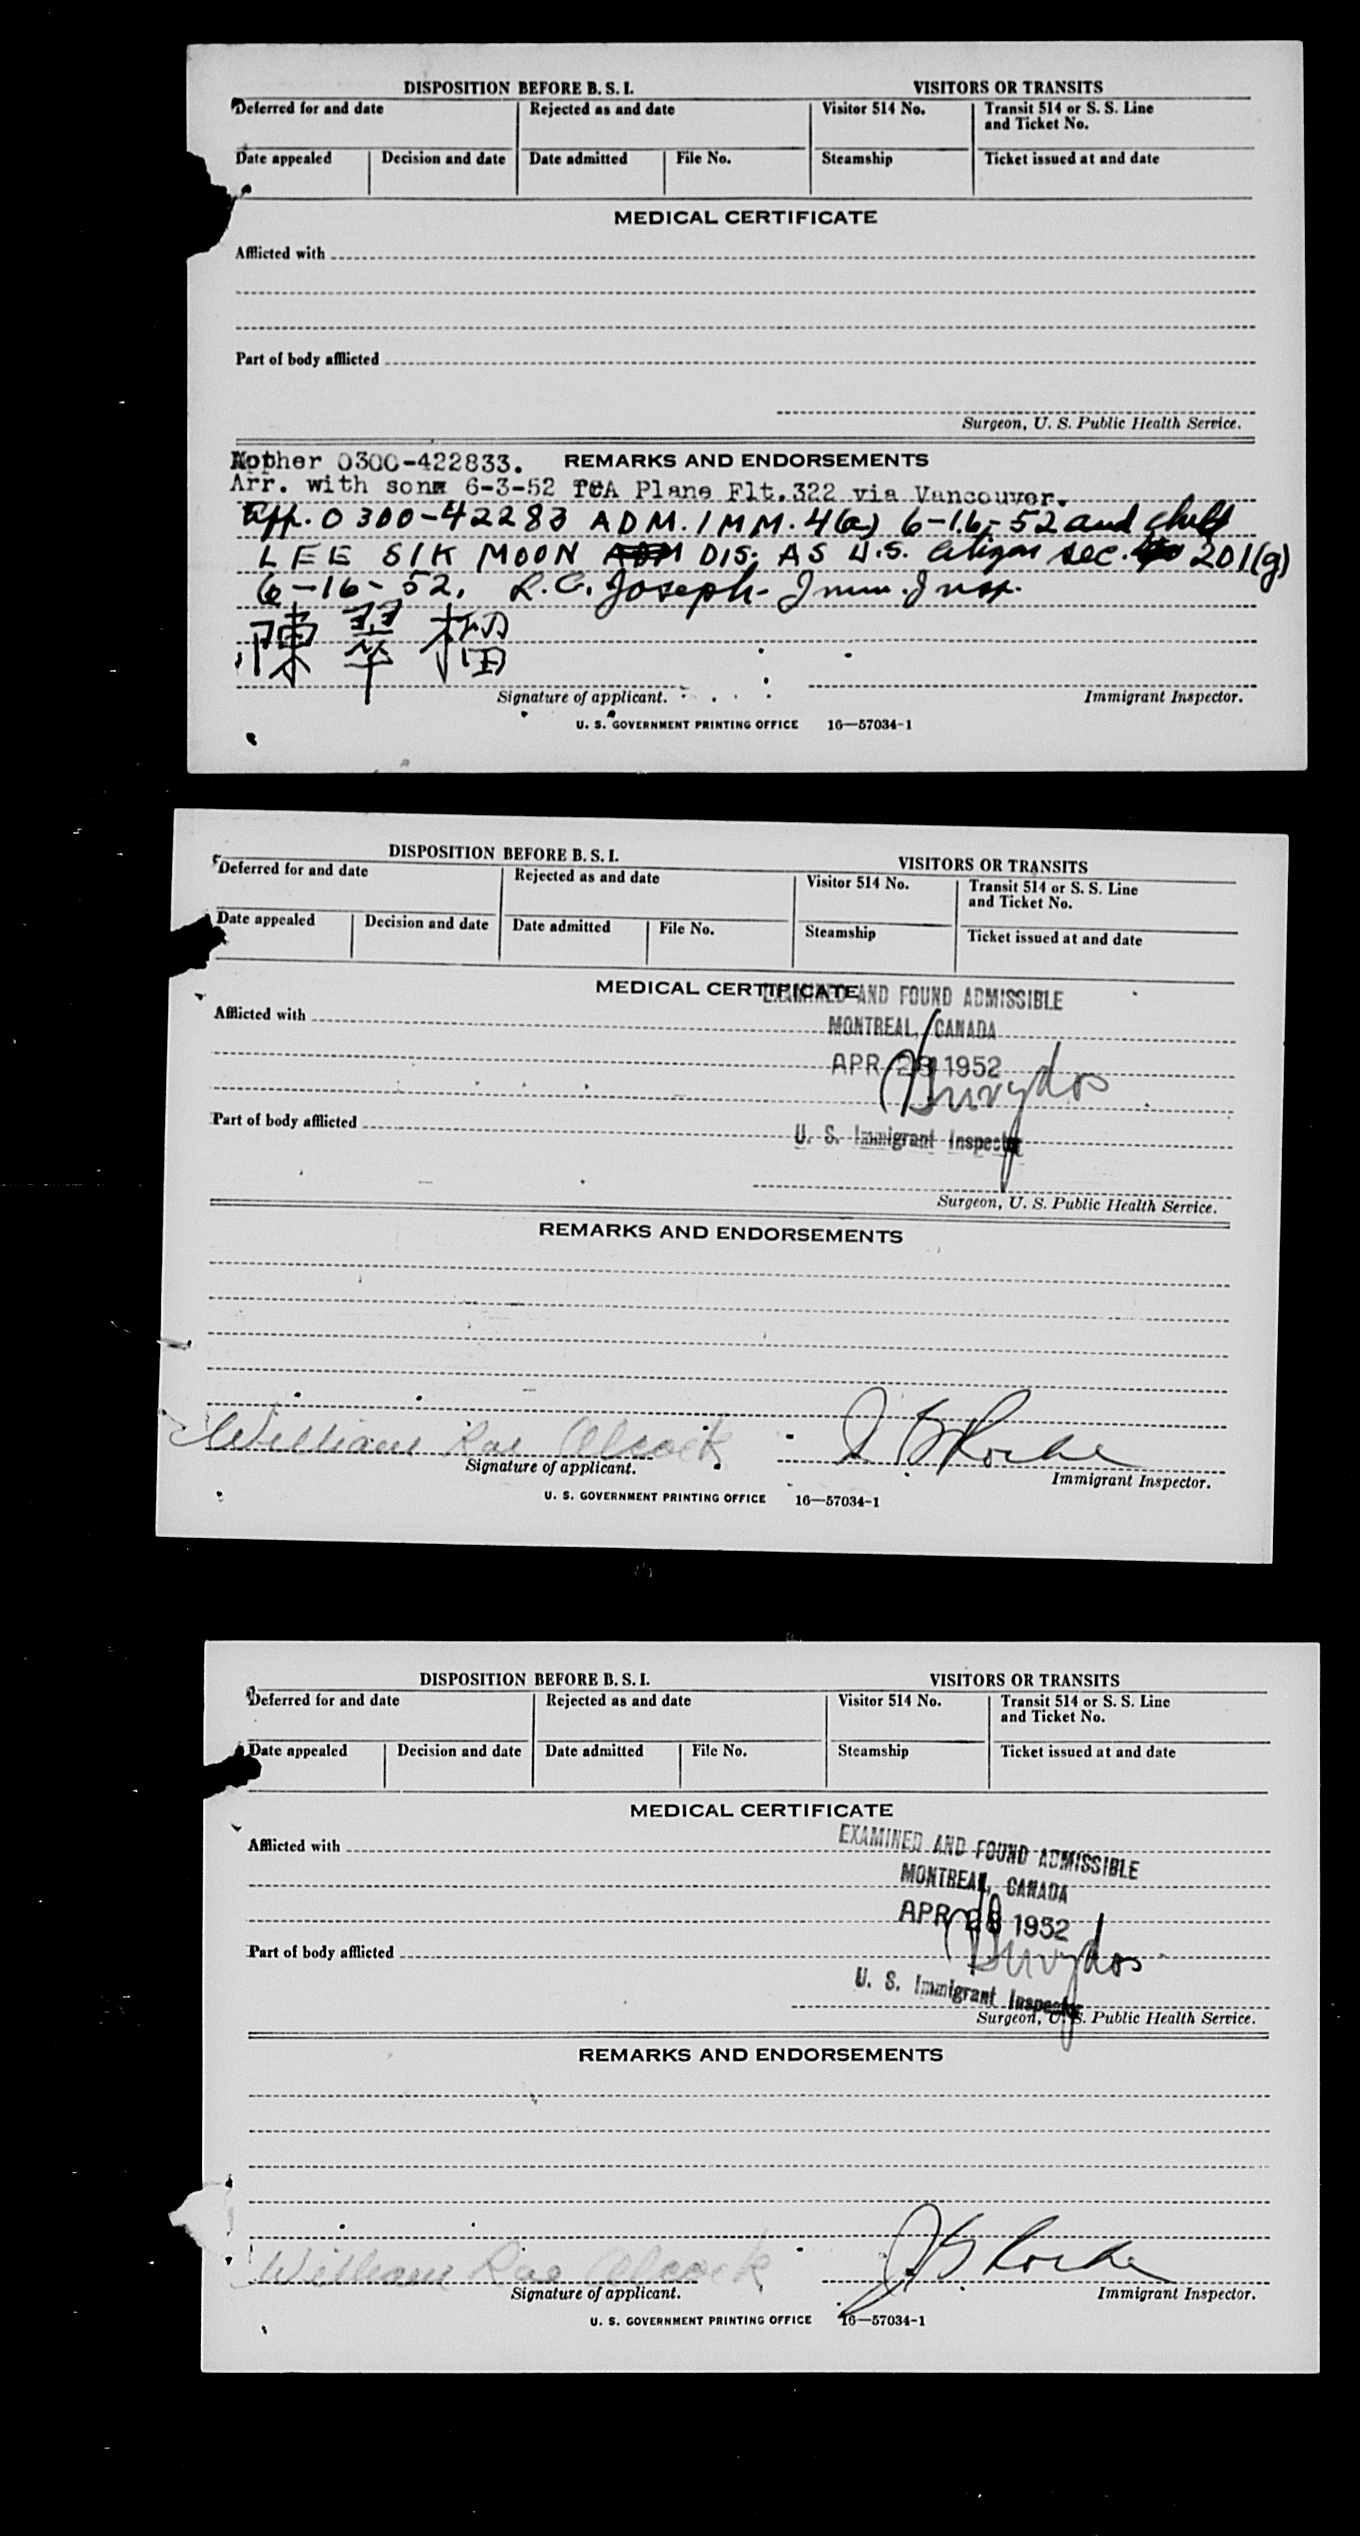 DISPOSITION BEFORE B. S. I. VISITORS OR TRANSITS
Deferred for and date Rejected as and date Visitor 514 No. Transit 514 or S. S. Line and Ticket No.
Date appealed Decision and date Date admitted File No. Steamship Ticket issued at and date
MEDICAL CERTIFICATE
Afflicted with
Part of body afflicted
Surgeon, U. S. Public Health Service.
Mother 0300-422833. REMARKS AND ENDORSEMENTS
Arr. with son 6-3-52 TCA Plane Flt.322 via Vancouver.
App. 0300-42283 ADM. IMM. 4(a) 6-16-52 and child
LEE SIK MOON DIS. AS U.S. citizen sec. 201(g)
6-16-52. R.C. Joseph - Imm. Insp.
陳翠榴
Signature of applicant. Immigrant Inspector.
U. S. GOVERNMENT PRINTING OFFICE 16—57034-1
DISPOSITION BEFORE B. S. I. VISITORS OR TRANSITS
Deferred for and date Rejected as and date Visitor 514 No. Transit 514 or S. S. Line and Ticket No.
Date appealed Decision and date Date admitted File No. Steamship Ticket issued at and date
MEDICAL CERTIFICATE
EXAMINED AND FOUND ADMISSIBLE
Afflicted with
MONTREAL, CANADA
APR 28 1952
Part of body afflicted
U. S. Immigrant Inspector
Surgeon, U. S. Public Health Service.
REMARKS AND ENDORSEMENTS
William Rae Alcock
Signature of applicant. Immigrant Inspector.
U. S. GOVERNMENT PRINTING OFFICE 16—57034-1
DISPOSITION BEFORE B. S. I. VISITORS OR TRANSITS
Deferred for and date Rejected as and date Visitor 514 No. Transit 514 or S. S. Line and Ticket No.
Date appealed Decision and date Date admitted File No. Steamship Ticket issued at and date
MEDICAL CERTIFICATE
Afflicted with
EXAMINED AND FOUND ADMISSIBLE
MONTREAL, CANADA
APR 28 1952
Part of body afflicted
U. S. Immigrant Inspector
Surgeon, U. S. Public Health Service.
REMARKS AND ENDORSEMENTS
William Rae Alcock
Signature of applicant. Immigrant Inspector.
U. S. GOVERNMENT PRINTING OFFICE 16—57034-1